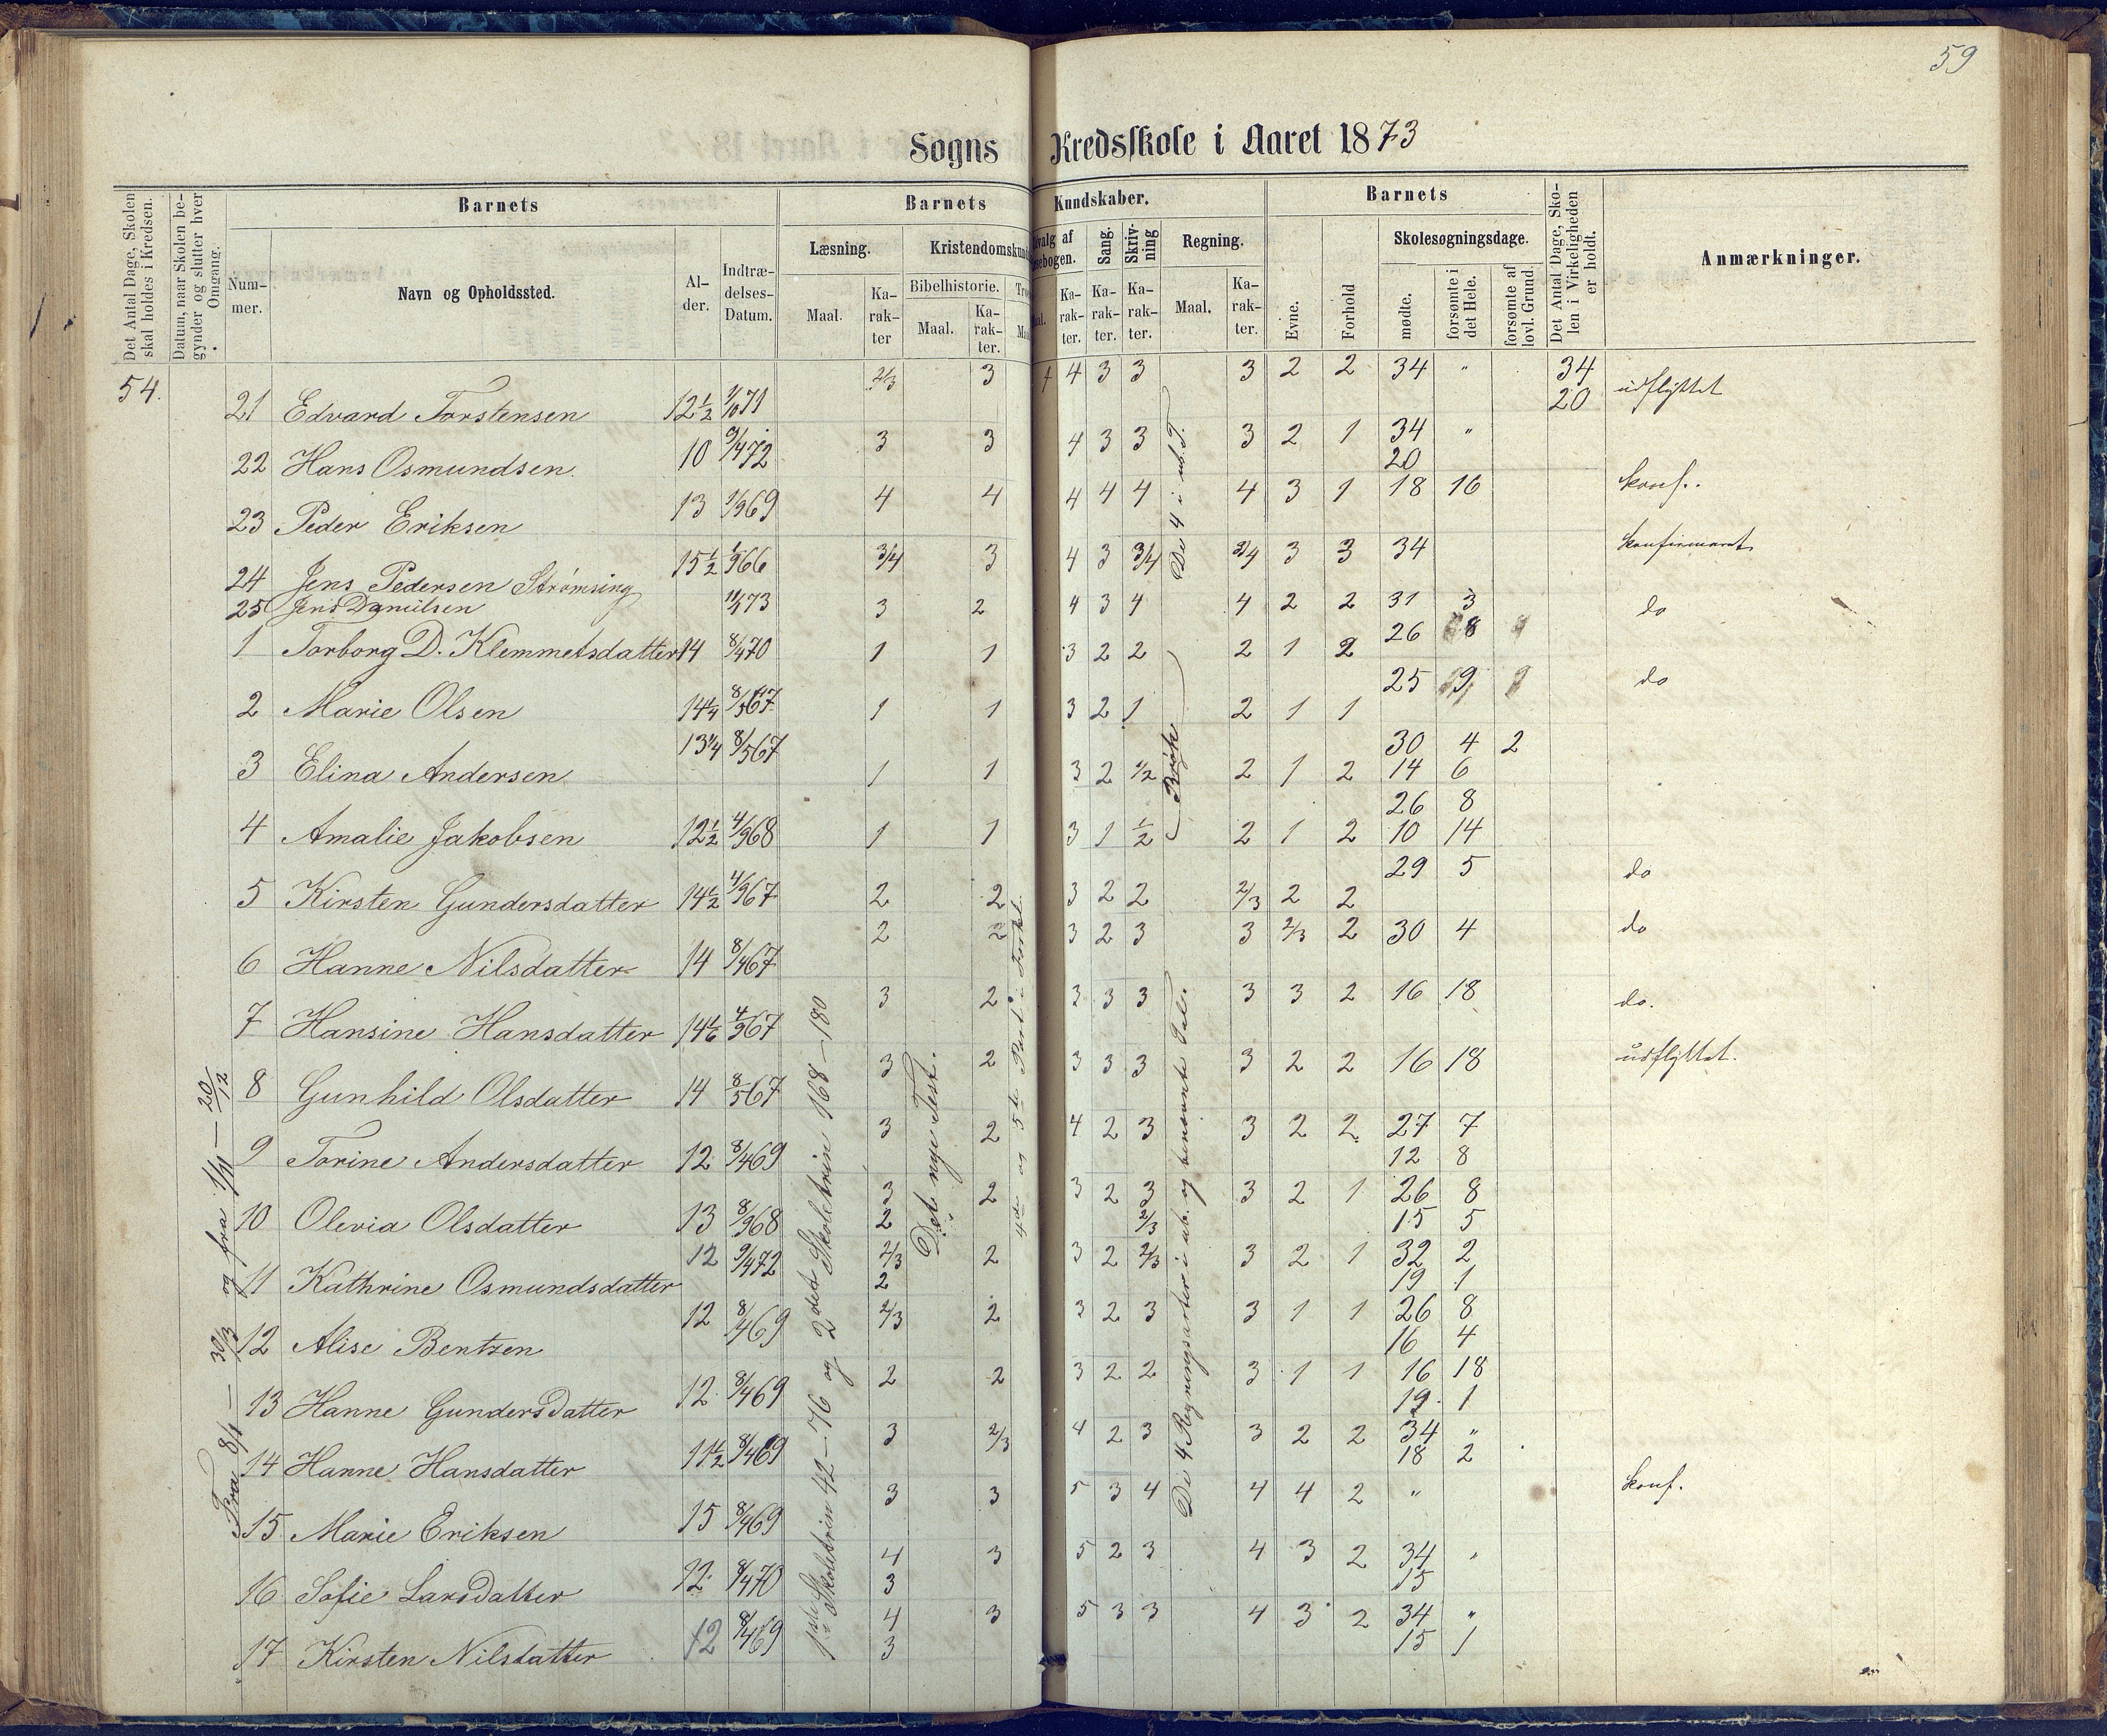 59
Sogns Kredsskole i Aaret 1873
Det Antal Dage, Skolen skal holdes i Kredsen.
Datum, naar Skolen begynder og slutter hver Omgang.
Barnets
Nummer.
Navn og Opholdssted.
Alder.
Indtrædelses-Datum.
Barnets Kundskaber.
Læsning.
Maal.
Karakter
Kristendomskund
Bibelhistorie.
Maal.
Karakter.
Karakter.
Sang.
Karakter.
Skrivning
Karakter.
Regning.
Maal.
Karakter.
Barnets
Evne.
Forhold
Skolesøgningsdage.
mødte.
forsømte i det Hele.
forsømte af lovl. Grund.
Det Antal Dage, Skolen i Virkeligheden er holdt.
Anmærkninger.
54.
21 Edvard Torstensen 12½ 1/10 71 2/3 3 4 3 3 3 2 2 34 " 34 20 udflyttet
22 Hans Osmundsen 10 9/4 72 3 3 4 3 3 3 2 1 34 " 20
23 Peder Eriksen 13 1/9 69 4 4 4 4 4 4 3 1 18 16 konf.
24 Jens Pedersen Strømsing 15½ 1/9 66 3/4 3 4 3 3/4 3/4 3 3 34 konfirmeret
25 Jens Danielsen 3 2 4 3 4 4 2 2 31 3 do
1 Torborg D. Klemmetsdatter 14 8/4 70 1 1 3 2 2 2 1 2 26 8
2 Marie Olsen 14¼ 8/5 67 1 1 3 2 1 2 1 1 25 9 do
3 Elina Andersen 13¼ 8/5 67 1 1 3 2 1/2 2 1 2 30 4 2
14 6
4 Amalie Jakobsen 12½ 4/9 68 1 1 3 1 1/2 2 1 2 26 8
10 14
5 Kirsten Gundersdatter 14½ 4/9 67 2 2 3 2 2 2/3 2 2 29 5 do
6 Hanne Nilsdatter 14 8/4 67 2 2 3 2 3 3 2/3 2 30 4 do
7 Hansine Hansdatter 14 1/6 4/9 67 3 2 3 3 3 3 3 2 16 18 do.
8 Gunhild Olsdatter 14 8/5 67 3 2 3 3 3 3 2 2 16 18 udflyttet.
9 Torine Andersdatter 12 8/4 69 3 2 4 2 3 3 2 2 27 7
12 8
10 Olevia Olsdatter 13 8/9 68 3 2 3 2 3 3 2 1 26 8
2 2/3 15 5
11 Kathrine Osmundsdatter 12 9/4 72 2/3 2 3 2 2/3 3 2 1 32 2
2 19 1
12 Alise Bentzen 12 8/4 69 2/3 2 3 2 3 3 1 1 26 8
16 4
13 Hanne Gundersdatter 12 8/4 69 2 2 3 2 2 3 1 1 16 18
19 1
14 Hanne Hansdatter 11½ 8/4 69 3 2/3 4 2 3 3 2 2 34 "
18 2
15 Marie Eriksen 15 8/4 69 3 3 5 3 4 4 4 2 " konf.
16 Sofie Larsdatter 12 8/4 70 4 3 5 2 3 4 3 2 34 "
3 15
17 Kirsten Nilsdatter 12 8/4 69 4 3 5 3 3 4 3 2 34 "
3 15 1
Fra 8/1 — 30/3 og fra 1/11 — 20/12
1ste Skoletrin 42–76 og 2det Skoletrin 168–180
Det nye Test.
4de og 5te Part i Forkl.
De 4 i ub. T.
Brøk
De 4 Regningsarter i ub. og benævnte Tal.